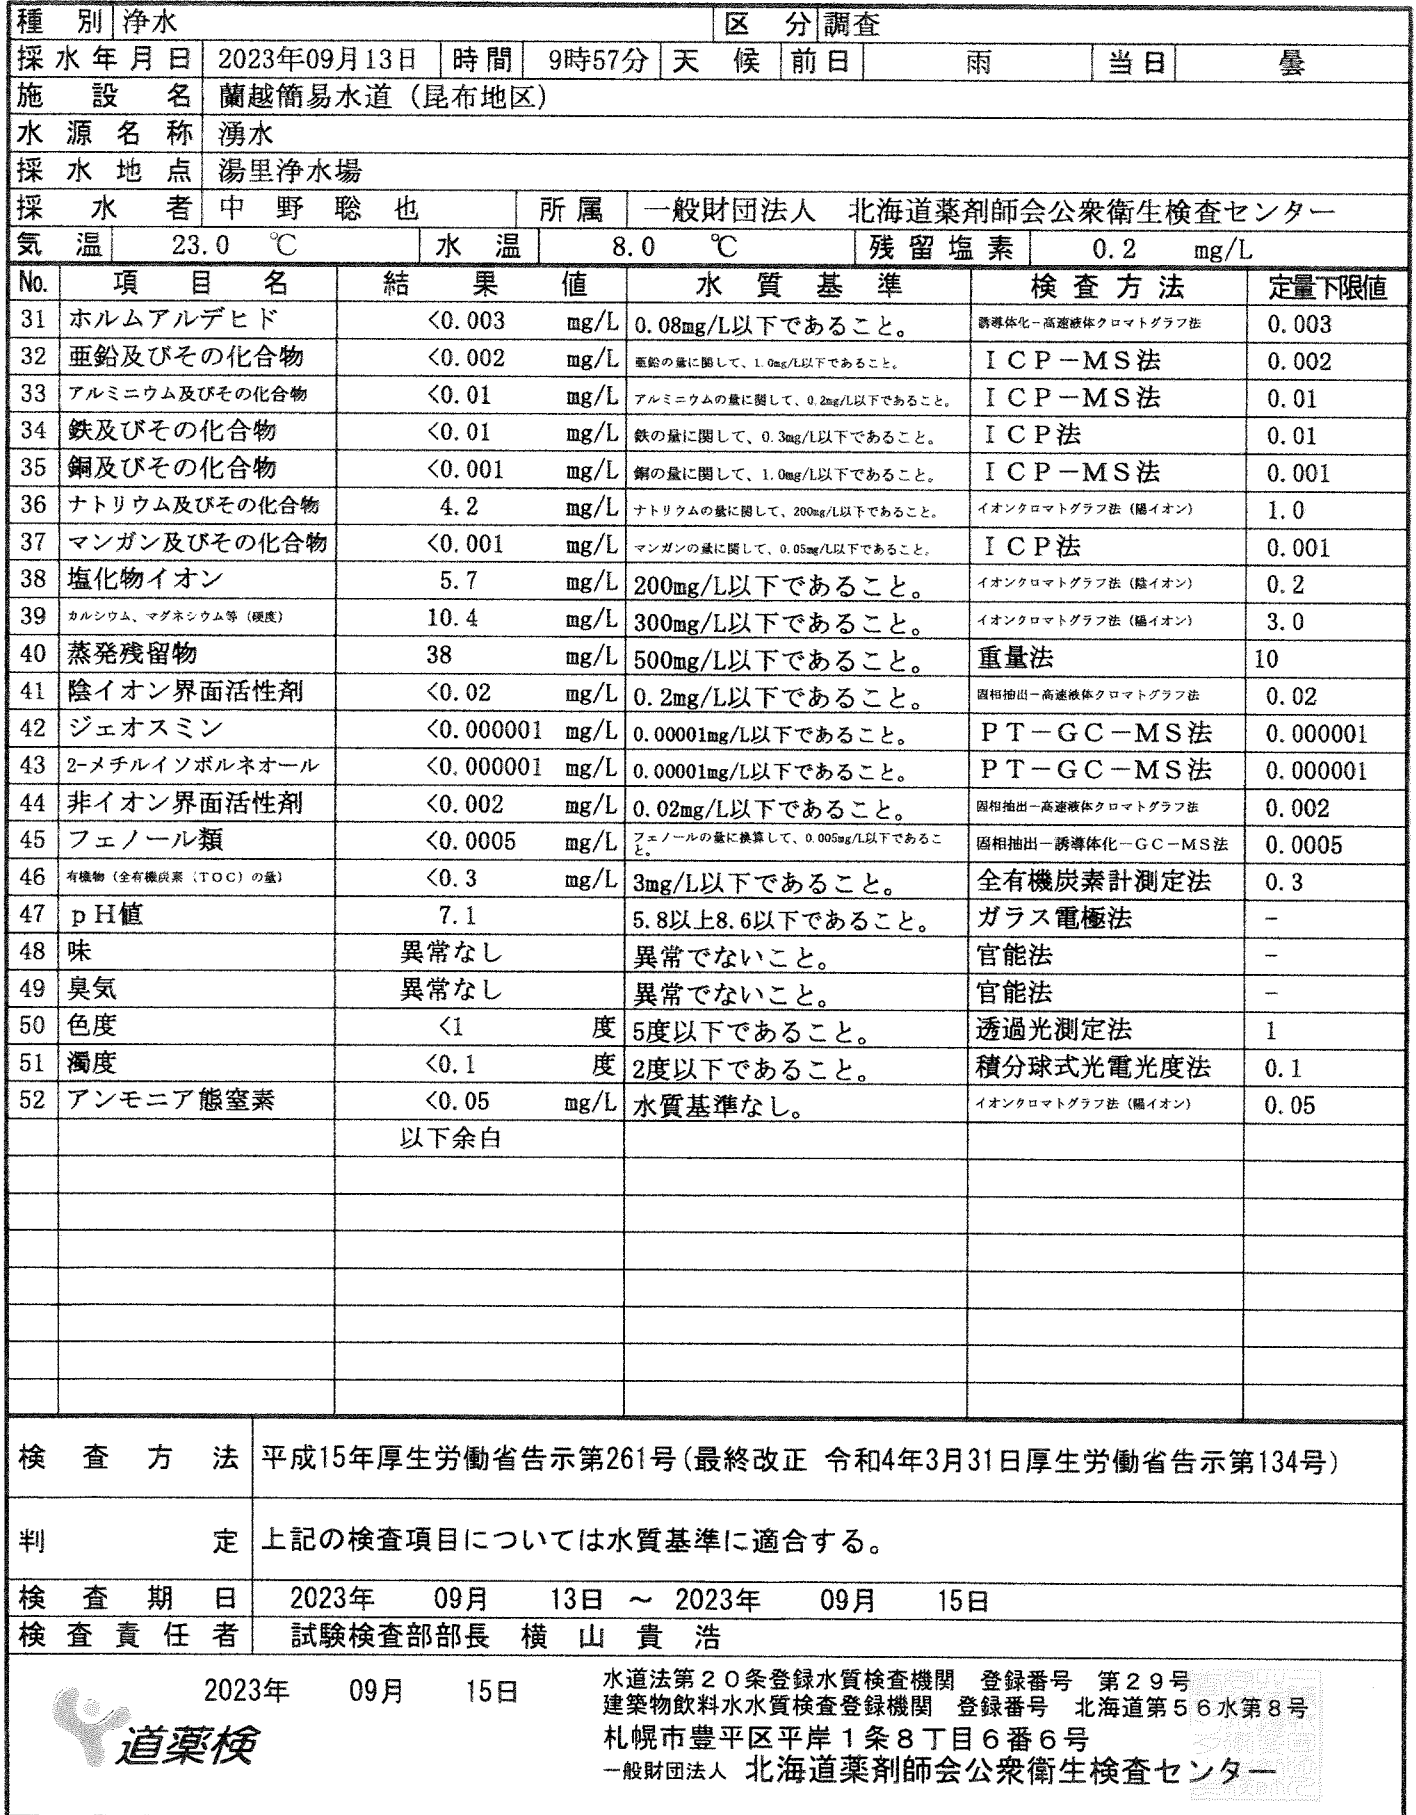 種別 浄水 区分 調査
採水年月日 2023年09月13日 時間 9時57分 天候 前日 雨 当日 曇
施設名 蘭越簡易水道（昆布地区）
水源名称 湧水
採水地点 湯里浄水場
採水者 中野聡也 所属 一般財団法人 北海道薬剤師会公衆衛生検査センター
気温 23.0 ℃ 水温 8.0 ℃ 残留塩素 0.2 mg/L
No. 項目名 結果値 水質基準 検査方法 定量下限値
31 ホルムアルデヒド <0.003 mg/L 0.08mg/L以下であること。 誘導体化－高速液体クロマトグラフ法 0.003
32 亜鉛及びその化合物 <0.002 mg/L 亜鉛の量に関して、1.0mg/L以下であること。 ＩＣＰ－ＭＳ法 0.002
33 アルミニウム及びその化合物 <0.01 mg/L アルミニウムの量に関して、0.2mg/L以下であること。 ＩＣＰ－ＭＳ法 0.01
34 鉄及びその化合物 <0.01 mg/L 鉄の量に関して、0.3mg/L以下であること。 ＩＣＰ法 0.01
35 銅及びその化合物 <0.001 mg/L 銅の量に関して、1.0mg/L以下であること。 ＩＣＰ－ＭＳ法 0.001
36 ナトリウム及びその化合物 4.2 mg/L ナトリウムの量に関して、200mg/L以下であること。 イオンクロマトグラフ法（陽イオン） 1.0
37 マンガン及びその化合物 <0.001 mg/L マンガンの量に関して、0.05mg/L以下であること。 ＩＣＰ法 0.001
38 塩化物イオン 5.7 mg/L 200mg/L以下であること。 イオンクロマトグラフ法（陰イオン） 0.2
39 カルシウム、マグネシウム等（硬度） 10.4 mg/L 300mg/L以下であること。 イオンクロマトグラフ法（陽イオン） 3.0
40 蒸発残留物 38 mg/L 500mg/L以下であること。 重量法 10
41 陰イオン界面活性剤 <0.02 mg/L 0.2mg/L以下であること。 固相抽出－高速液体クロマトグラフ法 0.02
42 ジェオスミン <0.000001 mg/L 0.00001mg/L以下であること。 ＰＴ－ＧＣ－ＭＳ法 0.000001
43 2-メチルイソボルネオール <0.000001 mg/L 0.00001mg/L以下であること。 ＰＴ－ＧＣ－ＭＳ法 0.000001
44 非イオン界面活性剤 <0.002 mg/L 0.02mg/L以下であること。 固相抽出－高速液体クロマトグラフ法 0.002
45 フェノール類 <0.0005 mg/L フェノールの量に換算して、0.005mg/L以下であること。 固相抽出－誘導体化－ＧＣ－ＭＳ法 0.0005
46 有機物（全有機炭素（ＴＯＣ）の量） <0.3 mg/L 3mg/L以下であること。 全有機炭素計測定法 0.3
47 ｐＨ値 7.1 5.8以上8.6以下であること。 ガラス電極法 －
48 味 異常なし 異常でないこと。 官能法 －
49 臭気 異常なし 異常でないこと。 官能法 －
50 色度 <1 度 5度以下であること。 透過光測定法 1
51 濁度 <0.1 度 2度以下であること。 積分球式光電光度法 0.1
52 アンモニア態窒素 <0.05 mg/L 水質基準なし。 イオンクロマトグラフ法（陽イオン） 0.05
以下余白
検査方法 平成15年厚生労働省告示第261号(最終改正 令和4年3月31日厚生労働省告示第134号)
判定 上記の検査項目については水質基準に適合する。
検査期日 2023年 09月 13日 ～ 2023年 09月 15日
検査責任者 試験検査部部長 横山貴浩
2023年 09月 15日
水道法第２０条登録水質検査機関 登録番号 第２９号
建築物飲料水水質検査登録機関 登録番号 北海道第５６水第８号
札幌市豊平区平岸１条８丁目６番６号
一般財団法人 北海道薬剤師会公衆衛生検査センター
道薬検